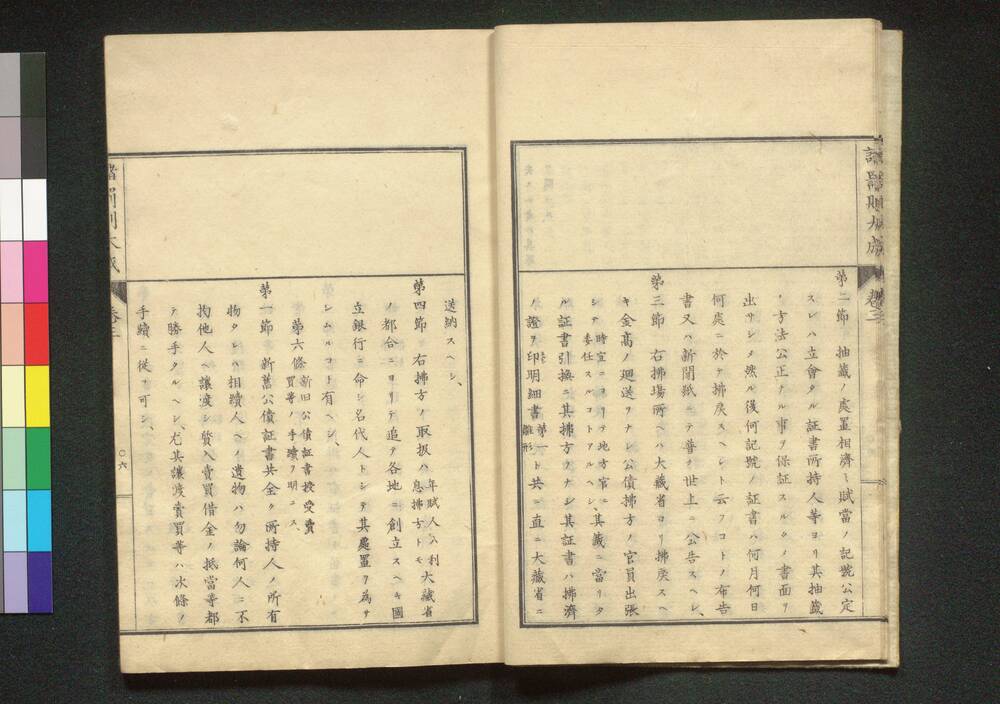 第二節 抽籤ノ處置相濟ミ賦當ノ記號公定
スレハ立會タル証書所持人等ヨリ其抽籤
ノ方法公正ナル事ヲ保証スルノ書面ヲ
出サシメ然ル後何記號ノ証書ハ何月何日
何處ニ於テ拂戻スヘシト云フコトノ布告
書又ハ新聞紙ニテ普ク世上ニ公告スヘシ、
第三節 右拂場所ヘハ大藏省ヨリ拂戻スヘ
キ金高ノ廻送ヲナシ公債拂方ノ官員出張
シテ 時宜ニヨリテ地方官ニ委任スルコトアルヘシ、其籤ニ當リタ
ル証書引換ニ其拂方ヲナシ其証書ハ拂濟
ノ證ヲ印シ明細書 第一雛形 ト共ニ直ニ大藏省ニ
送納スヘシ、
第四節 右拂方ノ取扱ハ 年賦人公利息拂方トモ 大藏省
ノ都合ニヨリテ追テ各地ニ創立スヘキ國
立銀行ニ命シ名代人トシテ其處置ヲ為サ
シムルコト有ヘシ、
第六條 新旧公債証書授受賣買等ノ手續ヲ明ニス、
第一節 新舊公債証書共全ク所持人ノ所有
物タレハ相續人ヘノ遺物ハ勿論何人ニ不
拘他人ヘ讓渡シ質入賣買借金ノ抵當等都
テ勝手タルヘシ、尤其讓渡賣買等ハ次條ノ
手續ニ従フ可シ、
卷三
〇六